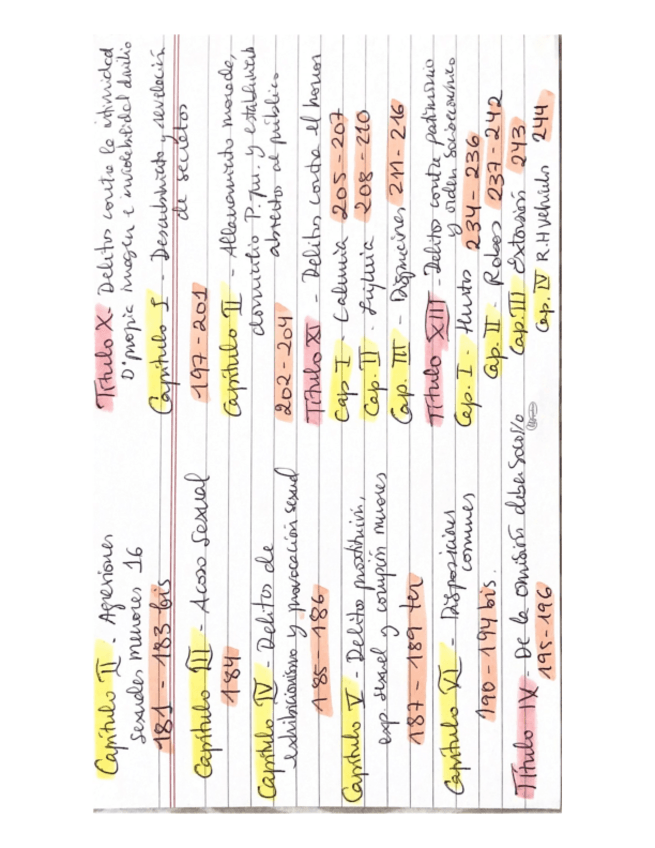 Capítulo II - Agresiones
sexuales menores 16
181 - 183 bis
Capítulo III - Acoso sexual
184
Capítulo IV - Delitos de
exhibicionismo y provocación sexual
185 - 186
Capítulo V - Delitos prostitución,
exp. sexual y corrupción menores
187 - 189 ter
Capítulo VI - Disposiciones
comunes
190 - 194 bis.
Título IX - De la omisión deber socorro
195-196
Título X - Delitos contra la intimidad
D' propia imagen e inviolabilidad domicilio
Capítulo I - Descubrimiento y revelación
de secretos
197 - 201
Capítulo II - Allanamiento morada,
domicilio P. ju. y establecimientos
abiertos al público
202 - 204
Título XI - Delitos contra el honor
Cap. I - Calumnia 205 - 207
Cap. II - Injuria 208 - 210
Cap. III - Disposiciones 211 - 216
Título XIII - Delitos contra patrimonio
y orden socioeconómico
Cap. I - Hurtos 234 - 236
Cap. II - Robos 237 - 242
Cap. III Extorsión 243
Cap. IV R.H vehículos 244